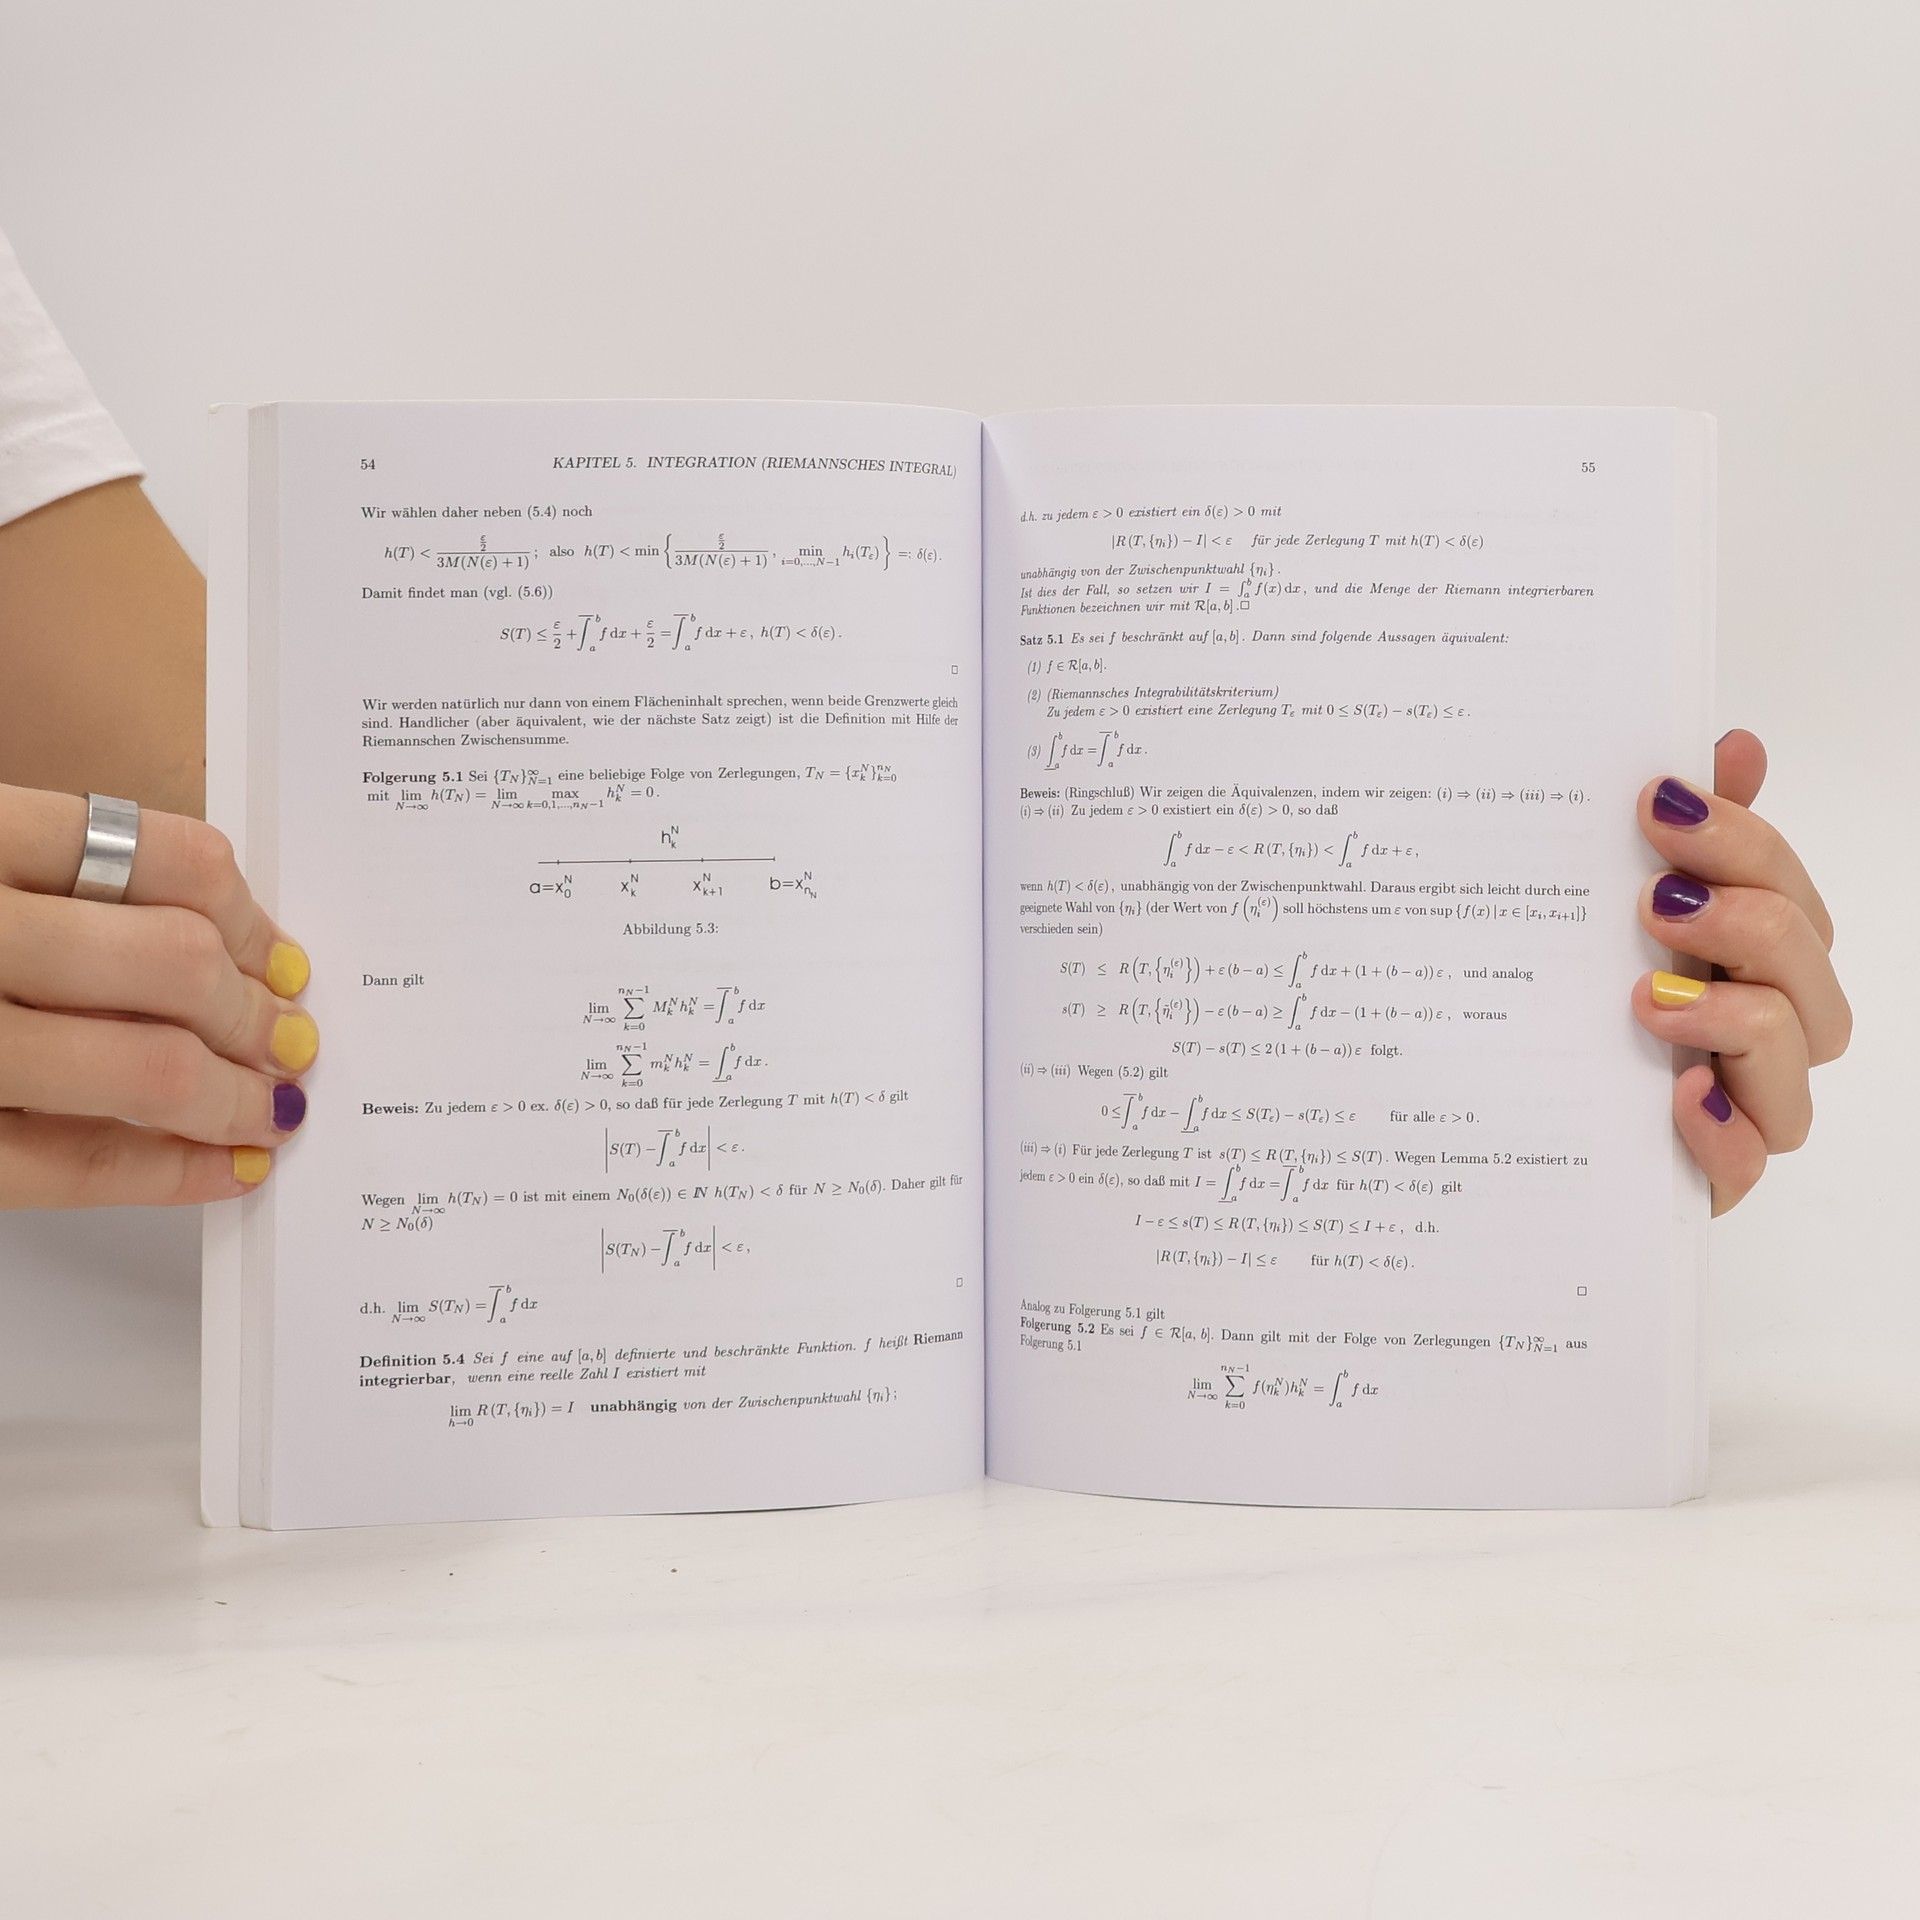 54 KAPITEL 5. INTEGRATION (RIEMANNSCHES INTEGRAL)
Wir wählen daher neben (5.4) noch
h(T) < \frac{\frac{ε}{2}}{3M(N(ε) + 1)} ; also h(T) < min { \frac{\frac{ε}{2}}{3M(N(ε) + 1)} , \min_{i=0,...,N−1} h_i(T_ε) } =: δ(ε).
Damit findet man (vgl. (5.6))
S(T) ≤ \frac{ε}{2} + \overline{∫}_a^b f dx + \frac{ε}{2} = \overline{∫}_a^b f dx + ε , h(T) < δ(ε) .
□
Wir werden natürlich nur dann von einem Flächeninhalt sprechen, wenn beide Grenzwerte gleich
sind. Handlicher (aber äquivalent, wie der nächste Satz zeigt) ist die Definition mit Hilfe der
Riemannschen Zwischensumme.
Folgerung 5.1 Sei {T_N}_{N=1}^∞ eine beliebige Folge von Zerlegungen, T_N = {x_k^N}_{k=0}^{n_N}
mit \lim_{N→∞} h(T_N) = \lim_{N→∞} \max_{k=0,1,...,n_N−1} h_k^N = 0 .
h_k^N
a=x_0^N x_k^N x_{k+1}^N b=x_{n_N}^N
Abbildung 5.3:
Dann gilt
\lim_{N→∞} ∑_{k=0}^{n_N−1} M_k^N h_k^N = \overline{∫}_a^b f dx
\lim_{N→∞} ∑_{k=0}^{n_N−1} m_k^N h_k^N = \underline{∫}_a^b f dx .
Beweis: Zu jedem ε > 0 ex. δ(ε) > 0, so daß für jede Zerlegung T mit h(T) < δ gilt
| S(T) − \overline{∫}_a^b f dx | < ε .
Wegen \lim_{N→∞} h(T_N) = 0 ist mit einem N_0(δ(ε)) ∈ ℕ h(T_N) < δ für N ≥ N_0(δ). Daher gilt für
N ≥ N_0(δ)
| S(T_N) − \overline{∫}_a^b f dx | < ε ,
□
d.h. \lim_{N→∞} S(T_N) = \overline{∫}_a^b f dx
Definition 5.4 Sei f eine auf [a, b] definierte und beschränkte Funktion. f heißt Riemann
integrierbar, wenn eine reelle Zahl I existiert mit
\lim_{h→0} R (T, {η_i}) = I unabhängig von der Zwischenpunktwahl {η_i} ;
55
d.h. zu jedem ε > 0 existiert ein δ(ε) > 0 mit
|R (T, {η_i}) − I| < ε für jede Zerlegung T mit h(T) < δ(ε)
unabhängig von der Zwischenpunktwahl {η_i} .
Ist dies der Fall, so setzen wir I = ∫_a^b f(x) dx , und die Menge der Riemann integrierbaren
Funktionen bezeichnen wir mit ℛ[a, b] .□
Satz 5.1 Es sei f beschränkt auf [a, b] . Dann sind folgende Aussagen äquivalent:
(1) f ∈ ℛ[a, b].
(2) (Riemannsches Integrabilitätskriterium)
Zu jedem ε > 0 existiert eine Zerlegung T_ε mit 0 ≤ S(T_ε) − s(T_ε) ≤ ε .
(3) \underline{∫}_a^b f dx = \overline{∫}_a^b f dx .
Beweis: (Ringschluß) Wir zeigen die Äquivalenzen, indem wir zeigen: (i) ⇒ (ii) ⇒ (iii) ⇒ (i) .
(i) ⇒ (ii) Zu jedem ε > 0 existiert ein δ(ε) > 0, so daß
∫_a^b f dx − ε < R (T, {η_i}) < ∫_a^b f dx + ε ,
wenn h(T) < δ(ε) , unabhängig von der Zwischenpunktwahl. Daraus ergibt sich leicht durch eine
geeignete Wahl von {η_i} (der Wert von f (η_i^{(ε)}) soll höchstens um ε von sup {f(x) | x ∈ [x_i, x_{i+1}]}
verschieden sein)
S(T) ≤ R (T, {η_i^{(ε)}}) + ε (b − a) ≤ ∫_a^b f dx + (1 + (b − a)) ε , und analog
s(T) ≥ R (T, {\tilde{η}_i^{(ε)}}) − ε (b − a) ≥ ∫_a^b f dx − (1 + (b − a)) ε , woraus
S(T) − s(T) ≤ 2 (1 + (b − a)) ε folgt.
(ii) ⇒ (iii) Wegen (5.2) gilt
0 ≤ \overline{∫}_a^b f dx − \underline{∫}_a^b f dx ≤ S(T_ε) − s(T_ε) ≤ ε für alle ε > 0 .
(iii) ⇒ (i) Für jede Zerlegung T ist s(T) ≤ R (T, {η_i}) ≤ S(T) . Wegen Lemma 5.2 existiert zu
jedem ε > 0 ein δ(ε), so daß mit I = \underline{∫}_a^b f dx = \overline{∫}_a^b f dx für h(T) < δ(ε) gilt
I − ε ≤ s(T) ≤ R (T, {η_i}) ≤ S(T) ≤ I + ε , d.h.
|R (T, {η_i}) − I| ≤ ε für h(T) < δ(ε) .
□
Analog zu Folgerung 5.1 gilt
Folgerung 5.2 Es sei f ∈ ℛ[a, b]. Dann gilt mit der Folge von Zerlegungen {T_N}_{N=1}^∞ aus
Folgerung 5.1
\lim_{N→∞} ∑_{k=0}^{n_N−1} f(η_k^N)h_k^N = ∫_a^b f dx